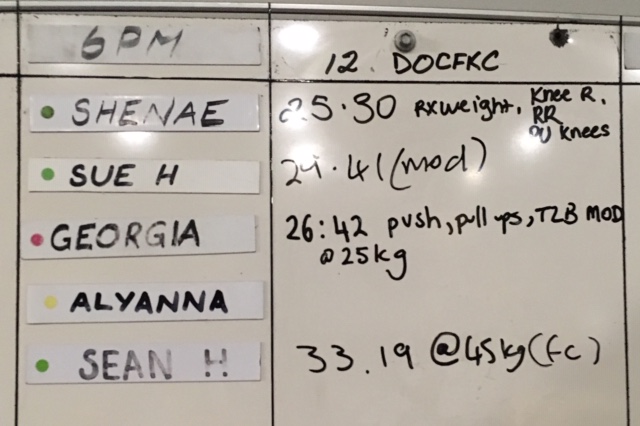 6PM
12. DOCFKC
SHENAE
25.30 RXWeight, Knee R,
RR
PU Knees
SUE H
29.41 (mod)
GEORGIA
26:42 push, pull ups, T2B MOD
@25kg
ALYANNA
SEAN H
33.19 @45kg (FC)